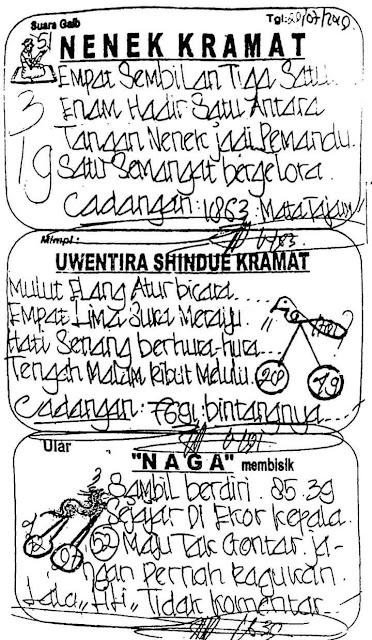 Suara Gaib
Tgl: 20/07/2019
NENEK KRAMAT
Empat Sembilan Tiga Satu...
3 Enam Hadir Satu Antara
Tangan Nenek jadi Pemandu.
19 Satu Semangat bergelora.
Cadangan: 1863. Mata Tajam
Mimpi:
UWENTIRA SHINDUE KRAMAT
Mulut Elang Atur bicara....
Empat Lima Suka Merayu.
Hati Senang berhura-hura...
Tengah Malam Ribut Melulu.
20 19
Cadangan: bintangnya....
Ular
"NAGA" membisik
Sambil berdiri. 85.39
Sejajar Di Ekor Kepala.
52 Maju Tak Gentar. ja-
ngan Pernah Ragukan.
Tidak komentar